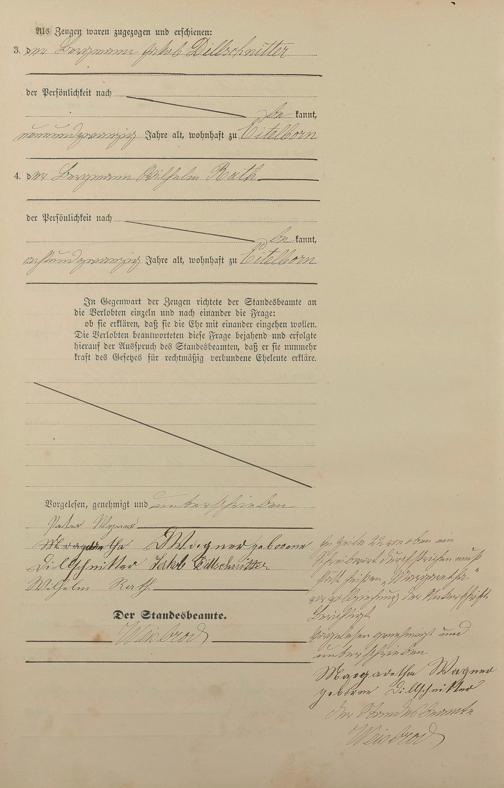 Als Zeugen waren zugezogen und erschienen:
3. der Bergmann Jakob Dillschnitter
der Persönlichkeit nach
be kannt,
neunundzwanzig Jahre alt, wohnhaft zu Eitelborn
4. der Bergmann Wilhelm Rath
der Persönlichkeit nach
be kannt,
achtundzwanzig Jahre alt, wohnhaft zu Eitelborn
In Gegenwart der Zeugen richtete der Standesbeamte an
die Verlobten einzeln und nach einander die Frage:
ob sie erklären, daß sie die Ehe mit einander eingehen wollen.
Die Verlobten beantworteten diese Frage bejahend und erfolgte
hierauf der Ausspruch des Standesbeamten, daß er sie nunmehr
kraft des Gesetzes für rechtmäßig verbundene Eheleute erkläre.
Vorgelesen, genehmigt und unterschrieben
Peter Wagner
Wagner geborene
Dillschnitter Jakob Dillschnitter
Wilhelm Rath
Der Standesbeamte.
Weisbrod
Vorgelesen genehmigt und
unterschrieben
Magadetha Wagner
geborne Dillschnitter
Der Standesbeamte
Weisbrod